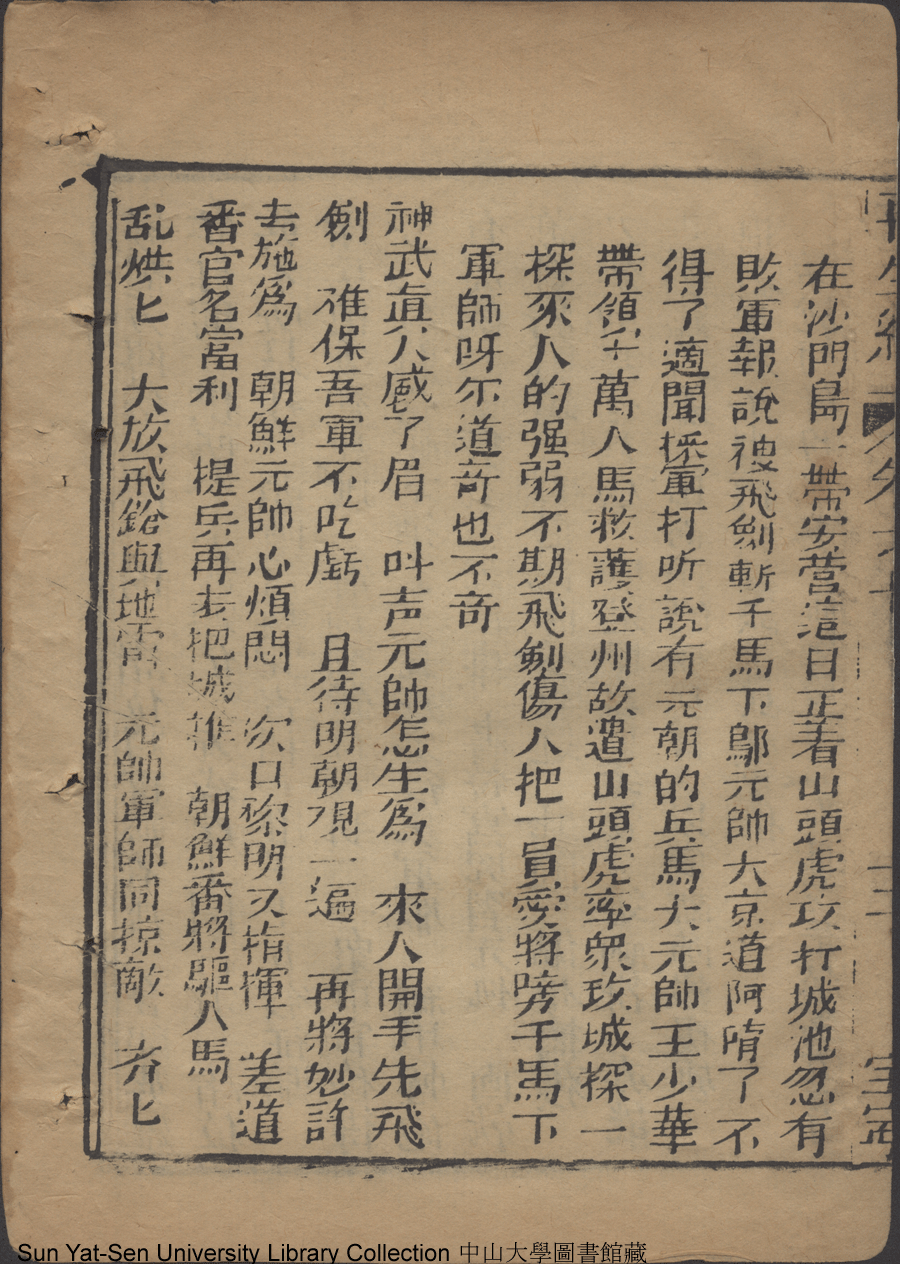 在沙門島一帶安营這日正着山頭虎攻打城池忽有
敗軍報說被飛劍斬于馬下鄔元帥大京道阿隋了不
得了適聞探軍打听說有元朝的兵馬大元帥王少華
帶領半萬人馬救護登州故遣山頭虎率眾攻城探一
探來人的强弱不期飛劍傷人把一員愛將磅于馬下
軍師呀尔道奇也不奇
神武眞人感了眉 叫声元帥怎生爲 來人開手先飛
劍 准保吾軍不吃虧 且待明朝現一遍 再將妙計
去施爲 朝鮮元帥心煩悶 次日黎明又指揮 差道
番官名富利 提兵再去把城推 朝鮮番將驅人馬
乱烘匕 大放飛鎗與地雷 元帥軍師同掠敵 齐匕
再生縁
Sun Yat-Sen University Library Collection 中山大學圖書館藏